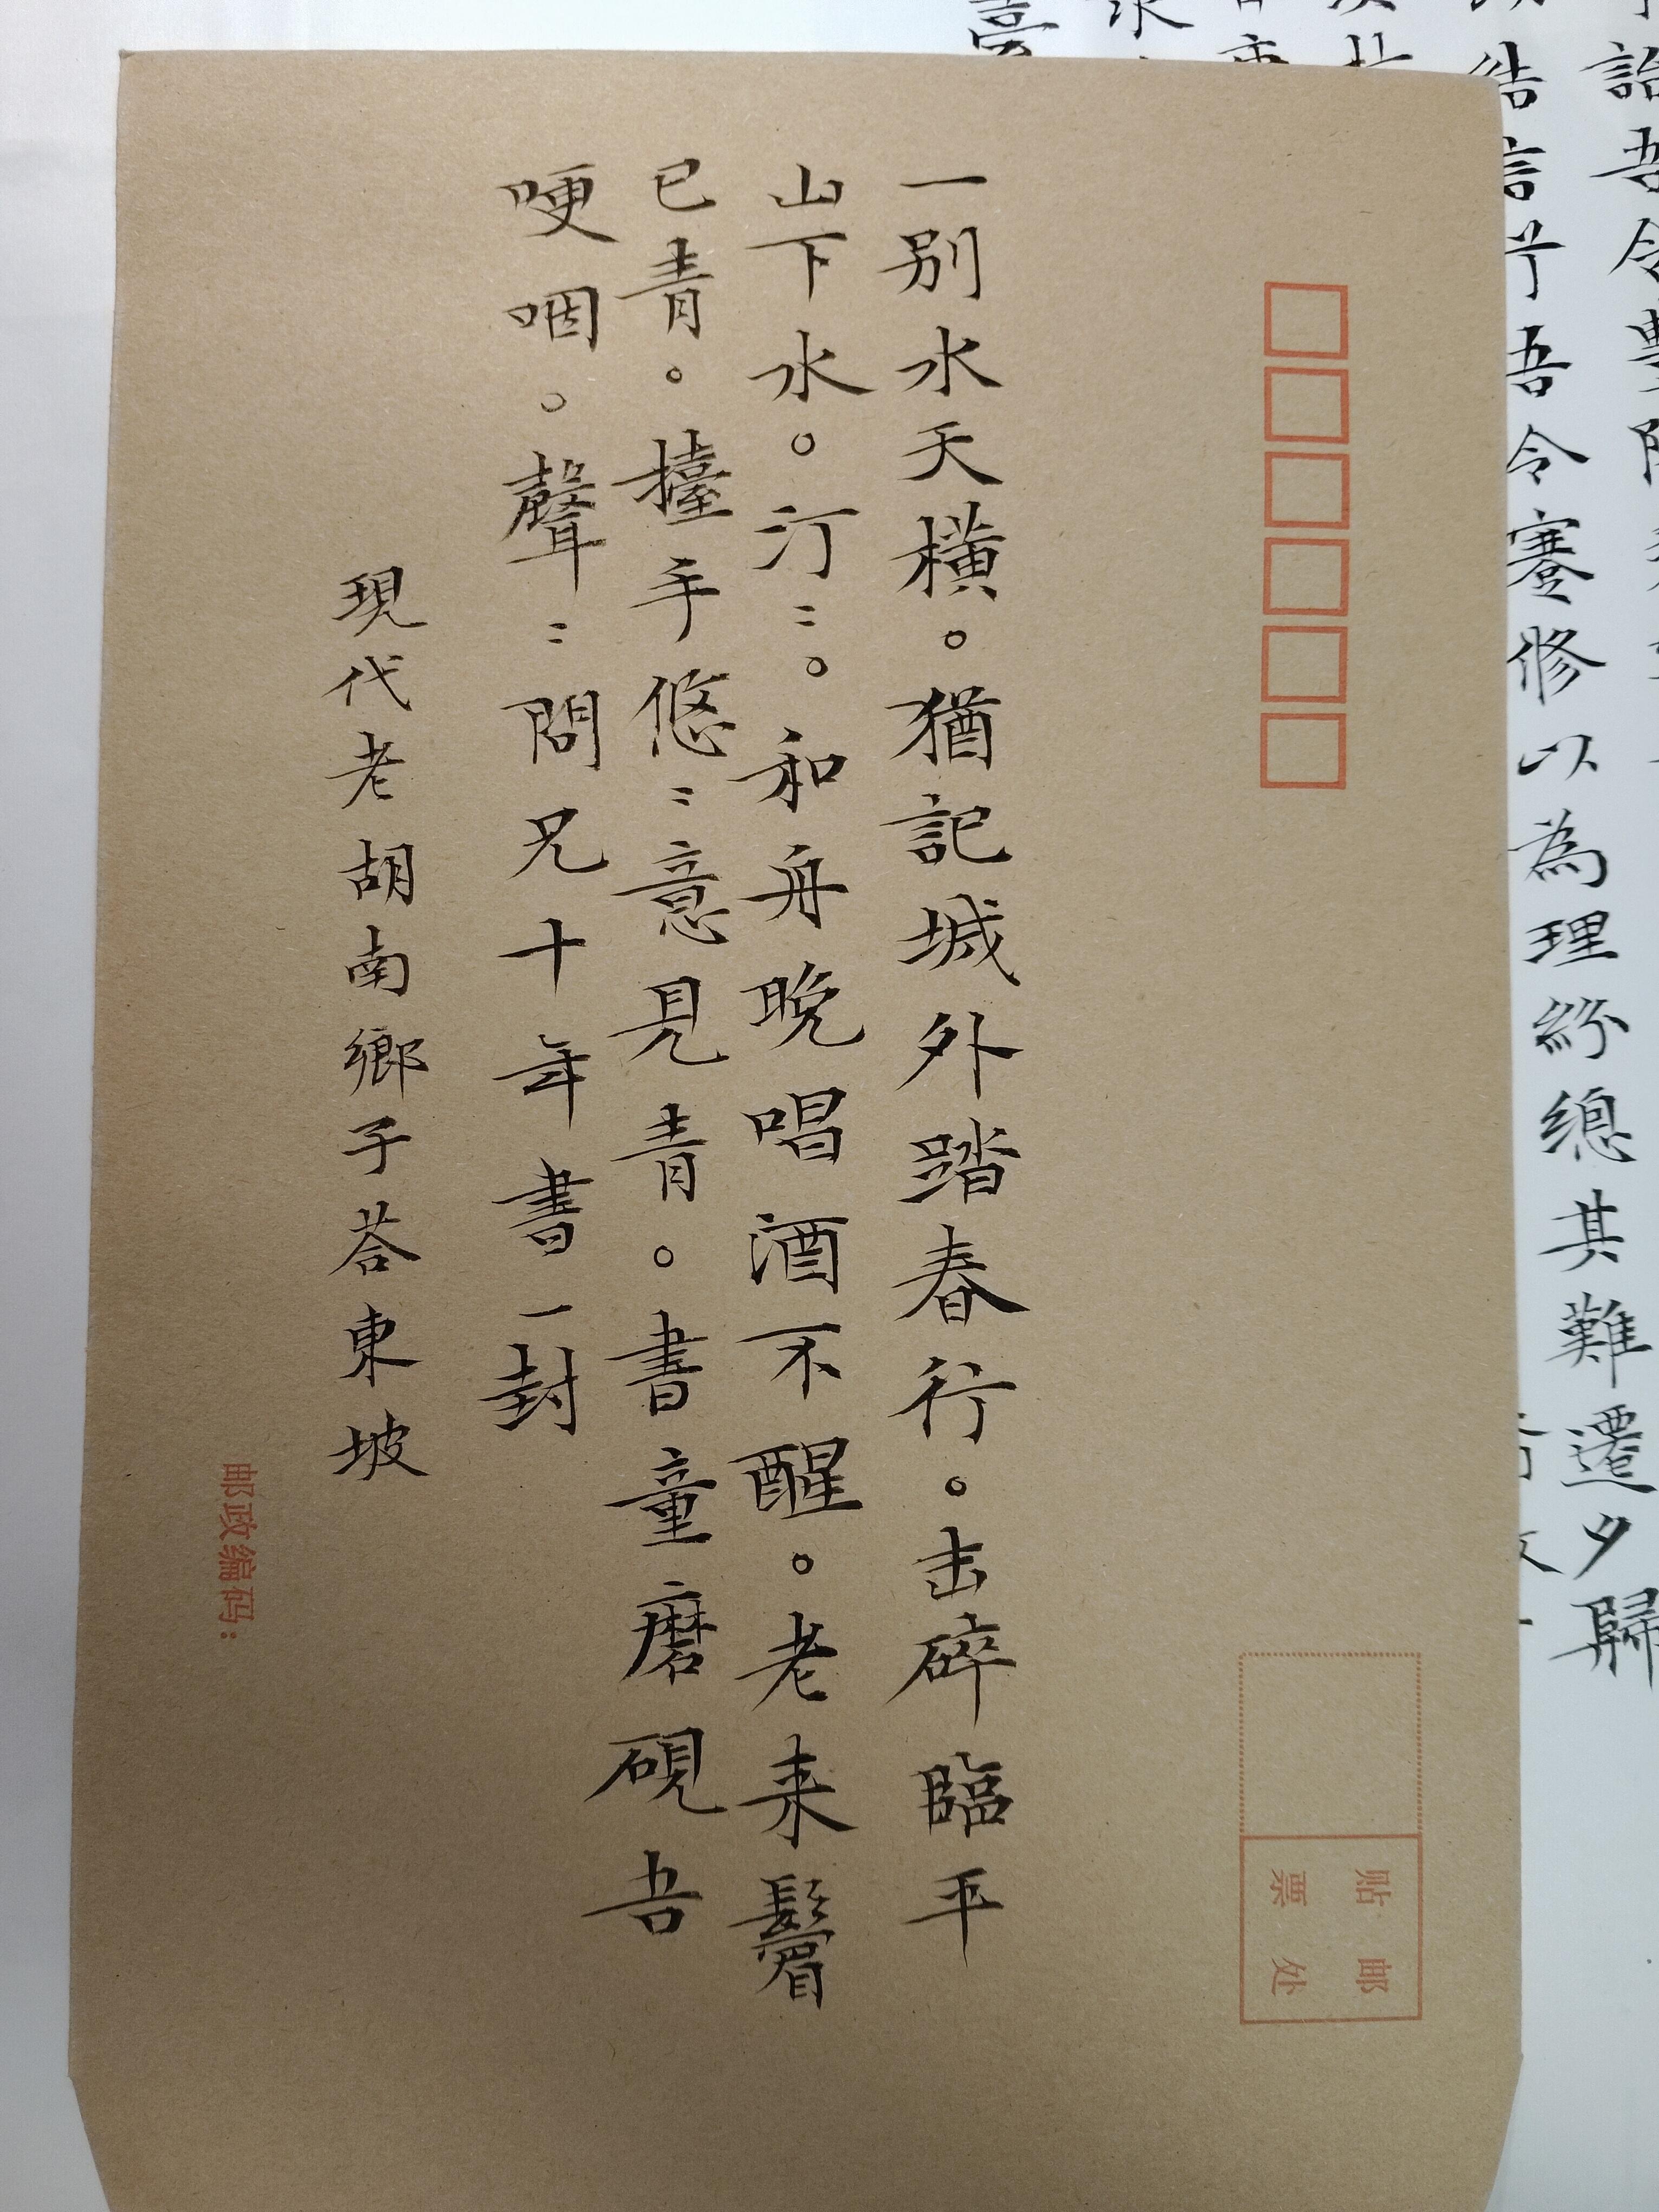 一别水天橫。猶記城外踏春行。击碎臨平
山下水。汀〻。和舟晚唱酒不醒。老来鬢
已青。擡手悠〻意見青。書童磨硯吾
哽咽。聲〻問兄十年書一封
現代老胡南鄉子荅東坡
邮政编码:
贴邮
票处
詒吾令
結言
吾令蹇修以為理紛總
其難遷夕歸